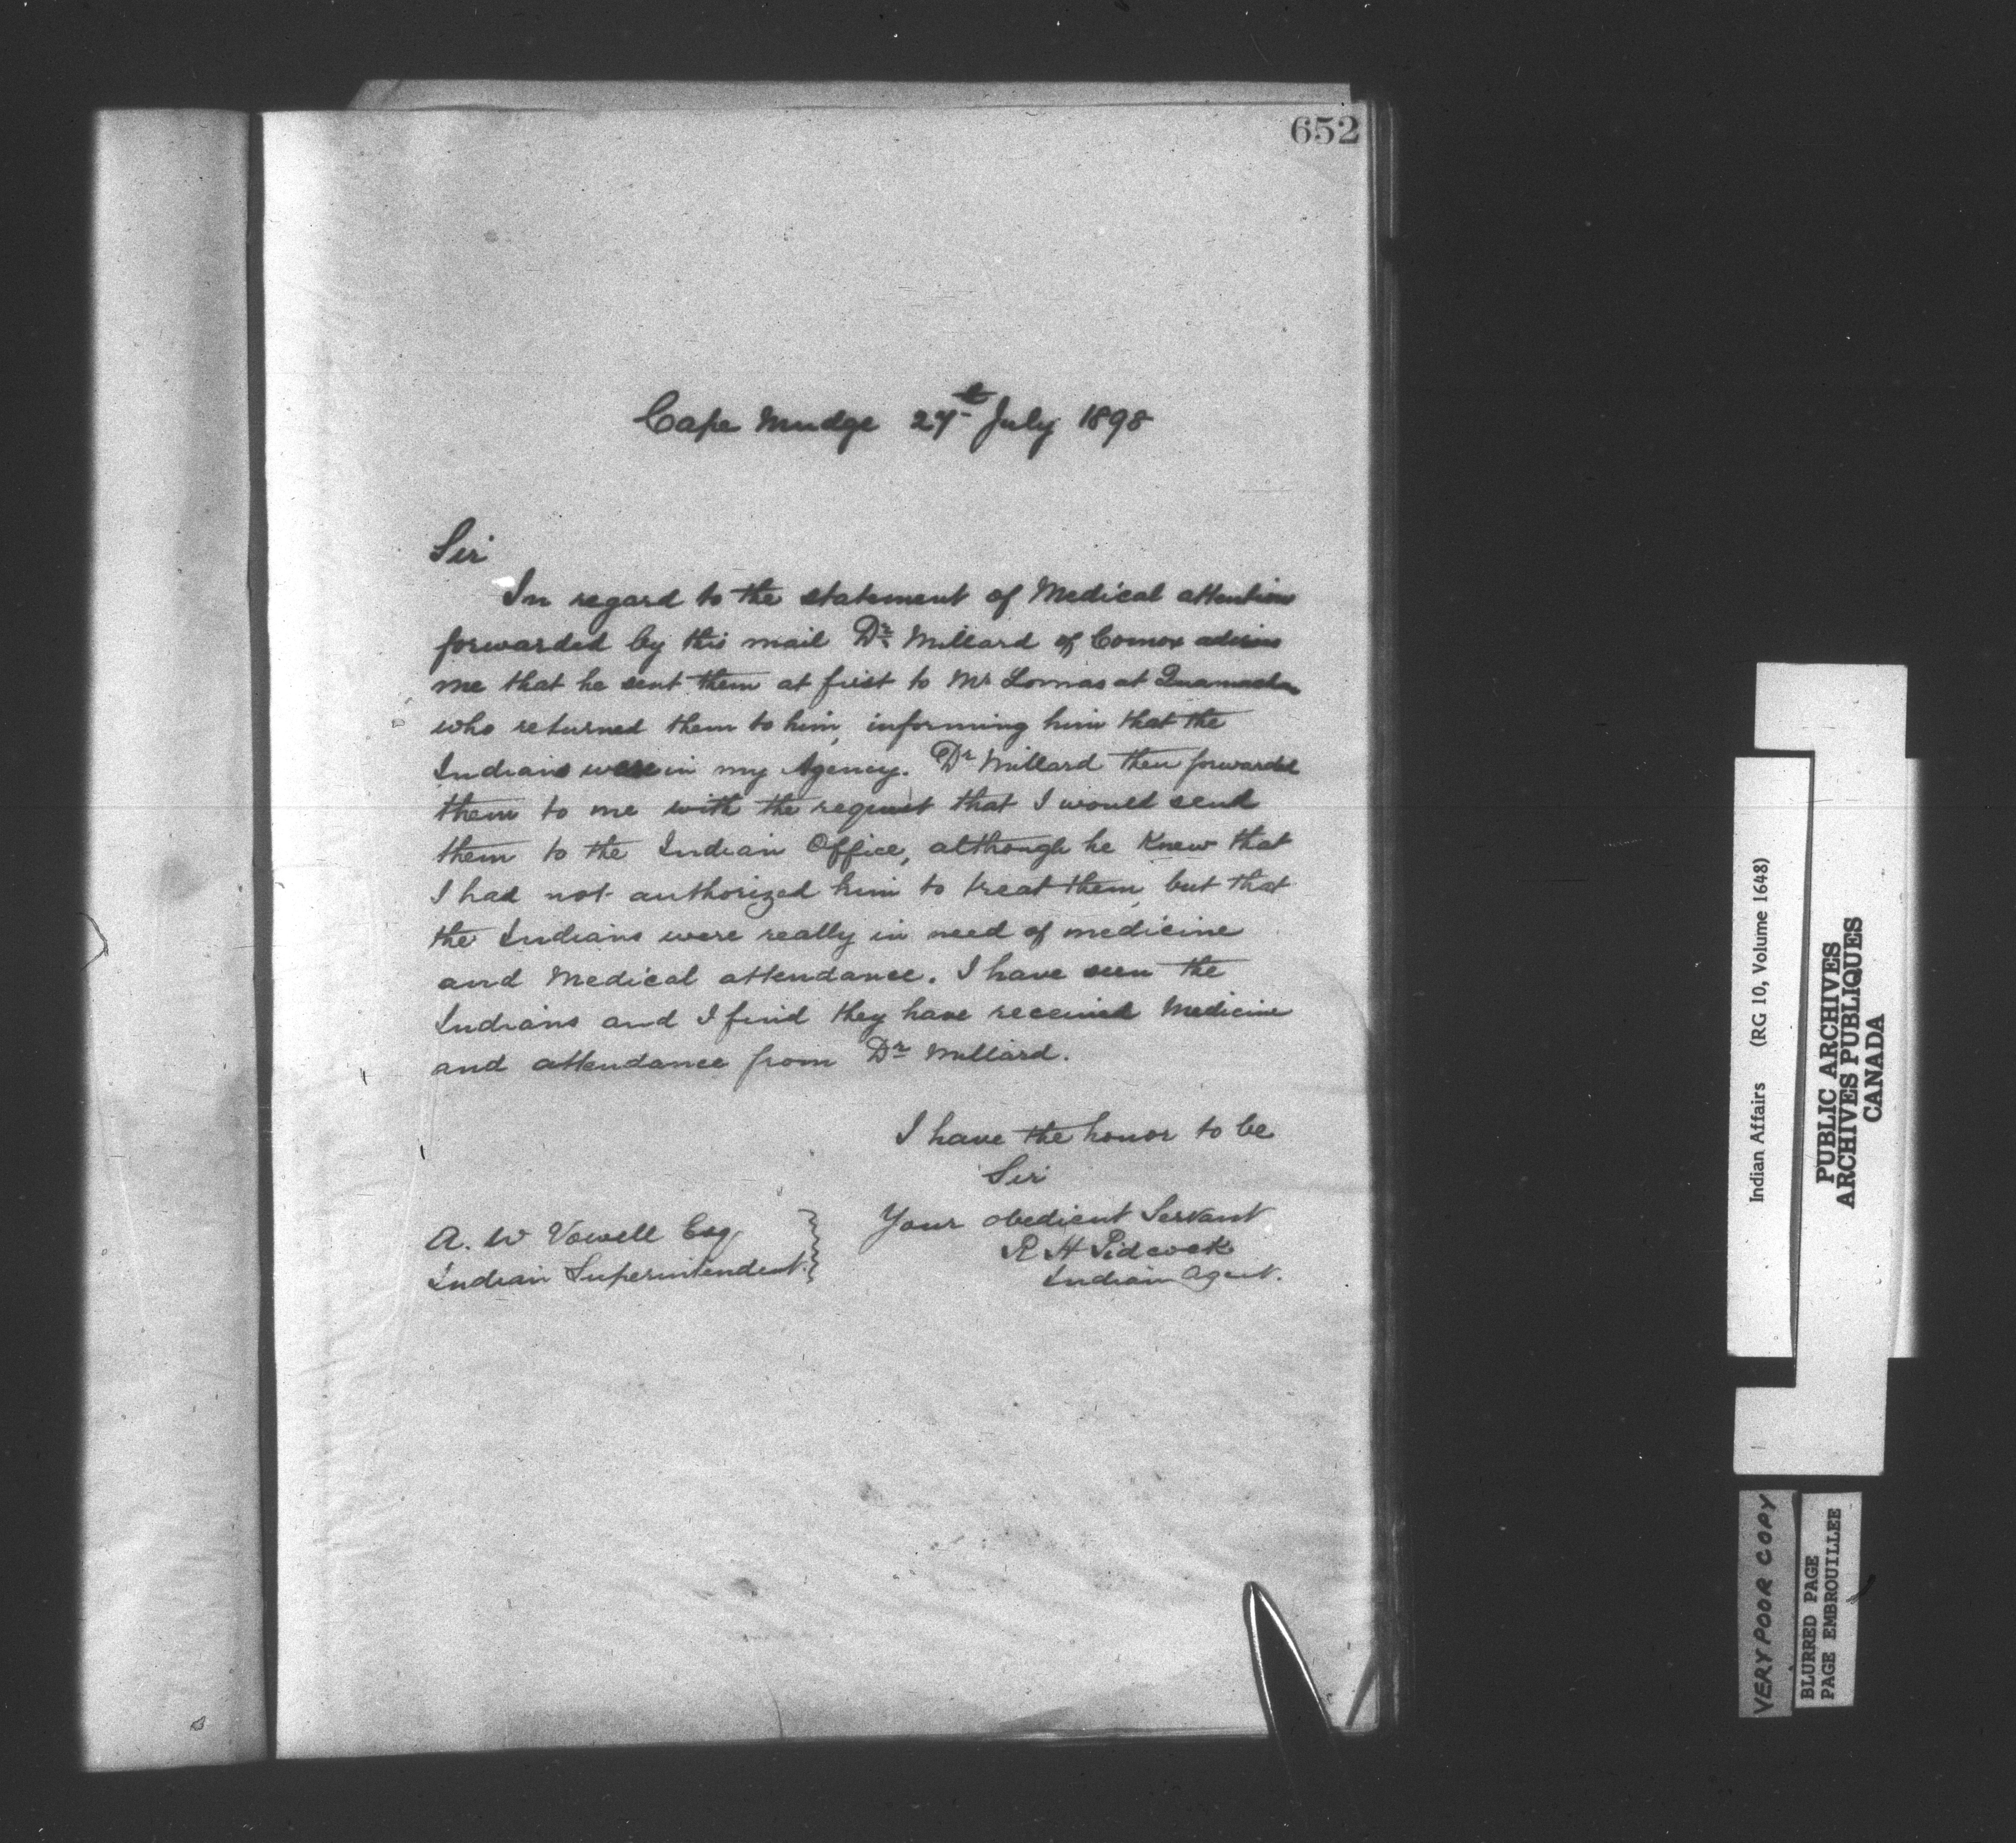 652
Cape Mudge 27th July 1898
Sir
In regard to the statement of Medical attention
forwarded by this mail Dr Millard of Comox advises
me that he sent them at first to Mr Lomas at Quamachan
who returned them to him, informing him that the
Indians were in my Agency. Dr Millard then forwarded
them to me with the request that I would send
them to the Indian Office, although he Knew that
I had not authorized him to treat them, but that
the Indians were really in need of medicine
and Medical attendance. I have seen the
Indians and I find they have received Medicine
and attendance from Dr Millard.
I have the honor to be
Sir
Your obedient Servant
R H Pidcock
Indian Agent.
A. W Vowell Esq
Indian Superintendent.
Indian Affairs (RG 10, Volume 1648)
PUBLIC ARCHIVES
ARCHIVES PUBLIQUES
CANADA
VERY POOR COPY
BLURRED PAGE
PAGE EMBROUILLEE